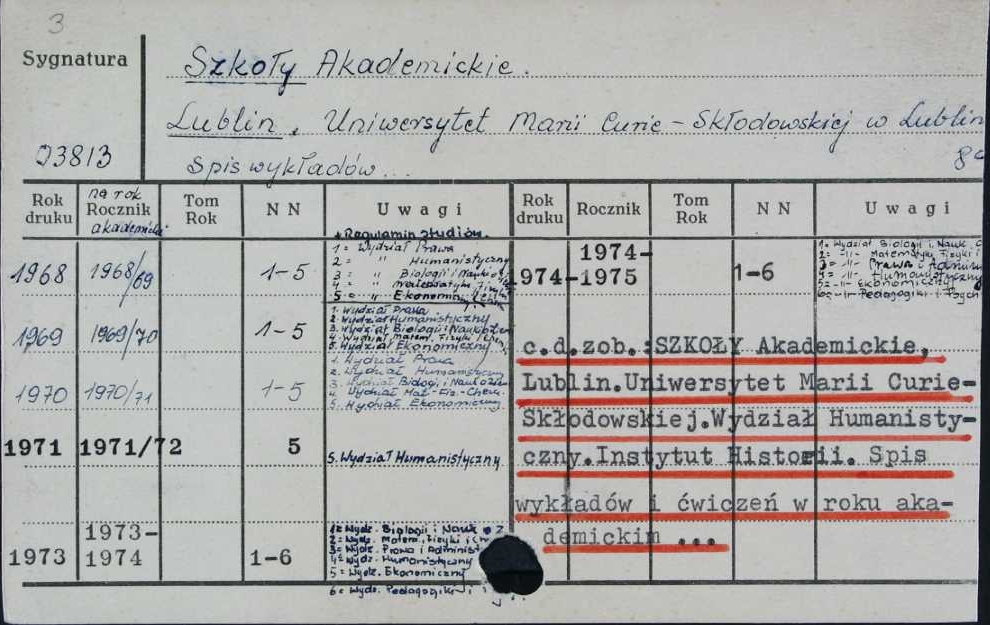 3
Sygnatura
Szkoły Akademickie.
Lublin, Uniwersytet Marii Curie-Skłodowskiej w Lublin
03813
Spis wykładów...
Rok druku
na rok
Rocznik
akademicki
Tom Rok
NN
Uwagi
Rok druku
Rocznik
Tom Rok
NN
Uwagi
+ Regulamin studiów.
1968 1968/69 1-5
1= Wydział Prawa
2= " Humanistyczny
3= " Biologii i Nauki
4= " Matematyki
5= " Ekonomiczny
1969 1969/70 1-5
1. Wydział Prawa
2. Wydział Humanistyczny
3. Wydział Biologii i Nauk o Zie
4. Wydział Matem. Fizyki i
5. Wydział Ekonomiczny
1970 1970/71 1-5
1. Wydział Prawa
2. Wydział Humanistyczny
3. Wydział Biologi i Nauk o Ziem
4. Wydział Mat-Fiz-Chem.
5. Wydział Ekonomiczny
1971 1971/72 5
5. Wydział Humanistyczny
1973 1973-1974 1-6
1= Wydz. Biologii i Nauk o Z
2= Wydz. Matem., Fizyki i
3= Wydz. Prawa i Administ
4= Wydz. Humanistyczny
5= Wydz. Ekonomiczny
6= Wydz. Pedagogiki i
974- 1974-1975 1-6
1= Wydział Biologii i Nauk
2= -"- Matematyki, Fizyki i
3= -"- Prawa i Adminis
4= -"- Humanistyczny
5= -"- Ekonomiczny
6= -"- Pedagogiki i Psych
c.d.zob.:SZKOŁY Akademickie,
Lublin.Uniwersytet Marii Curie-
Skłodowskiej.Wydział Humanisty-
czny.Instytut Historii. Spis
wykładów i ćwiczeń w roku aka-
demickim ...